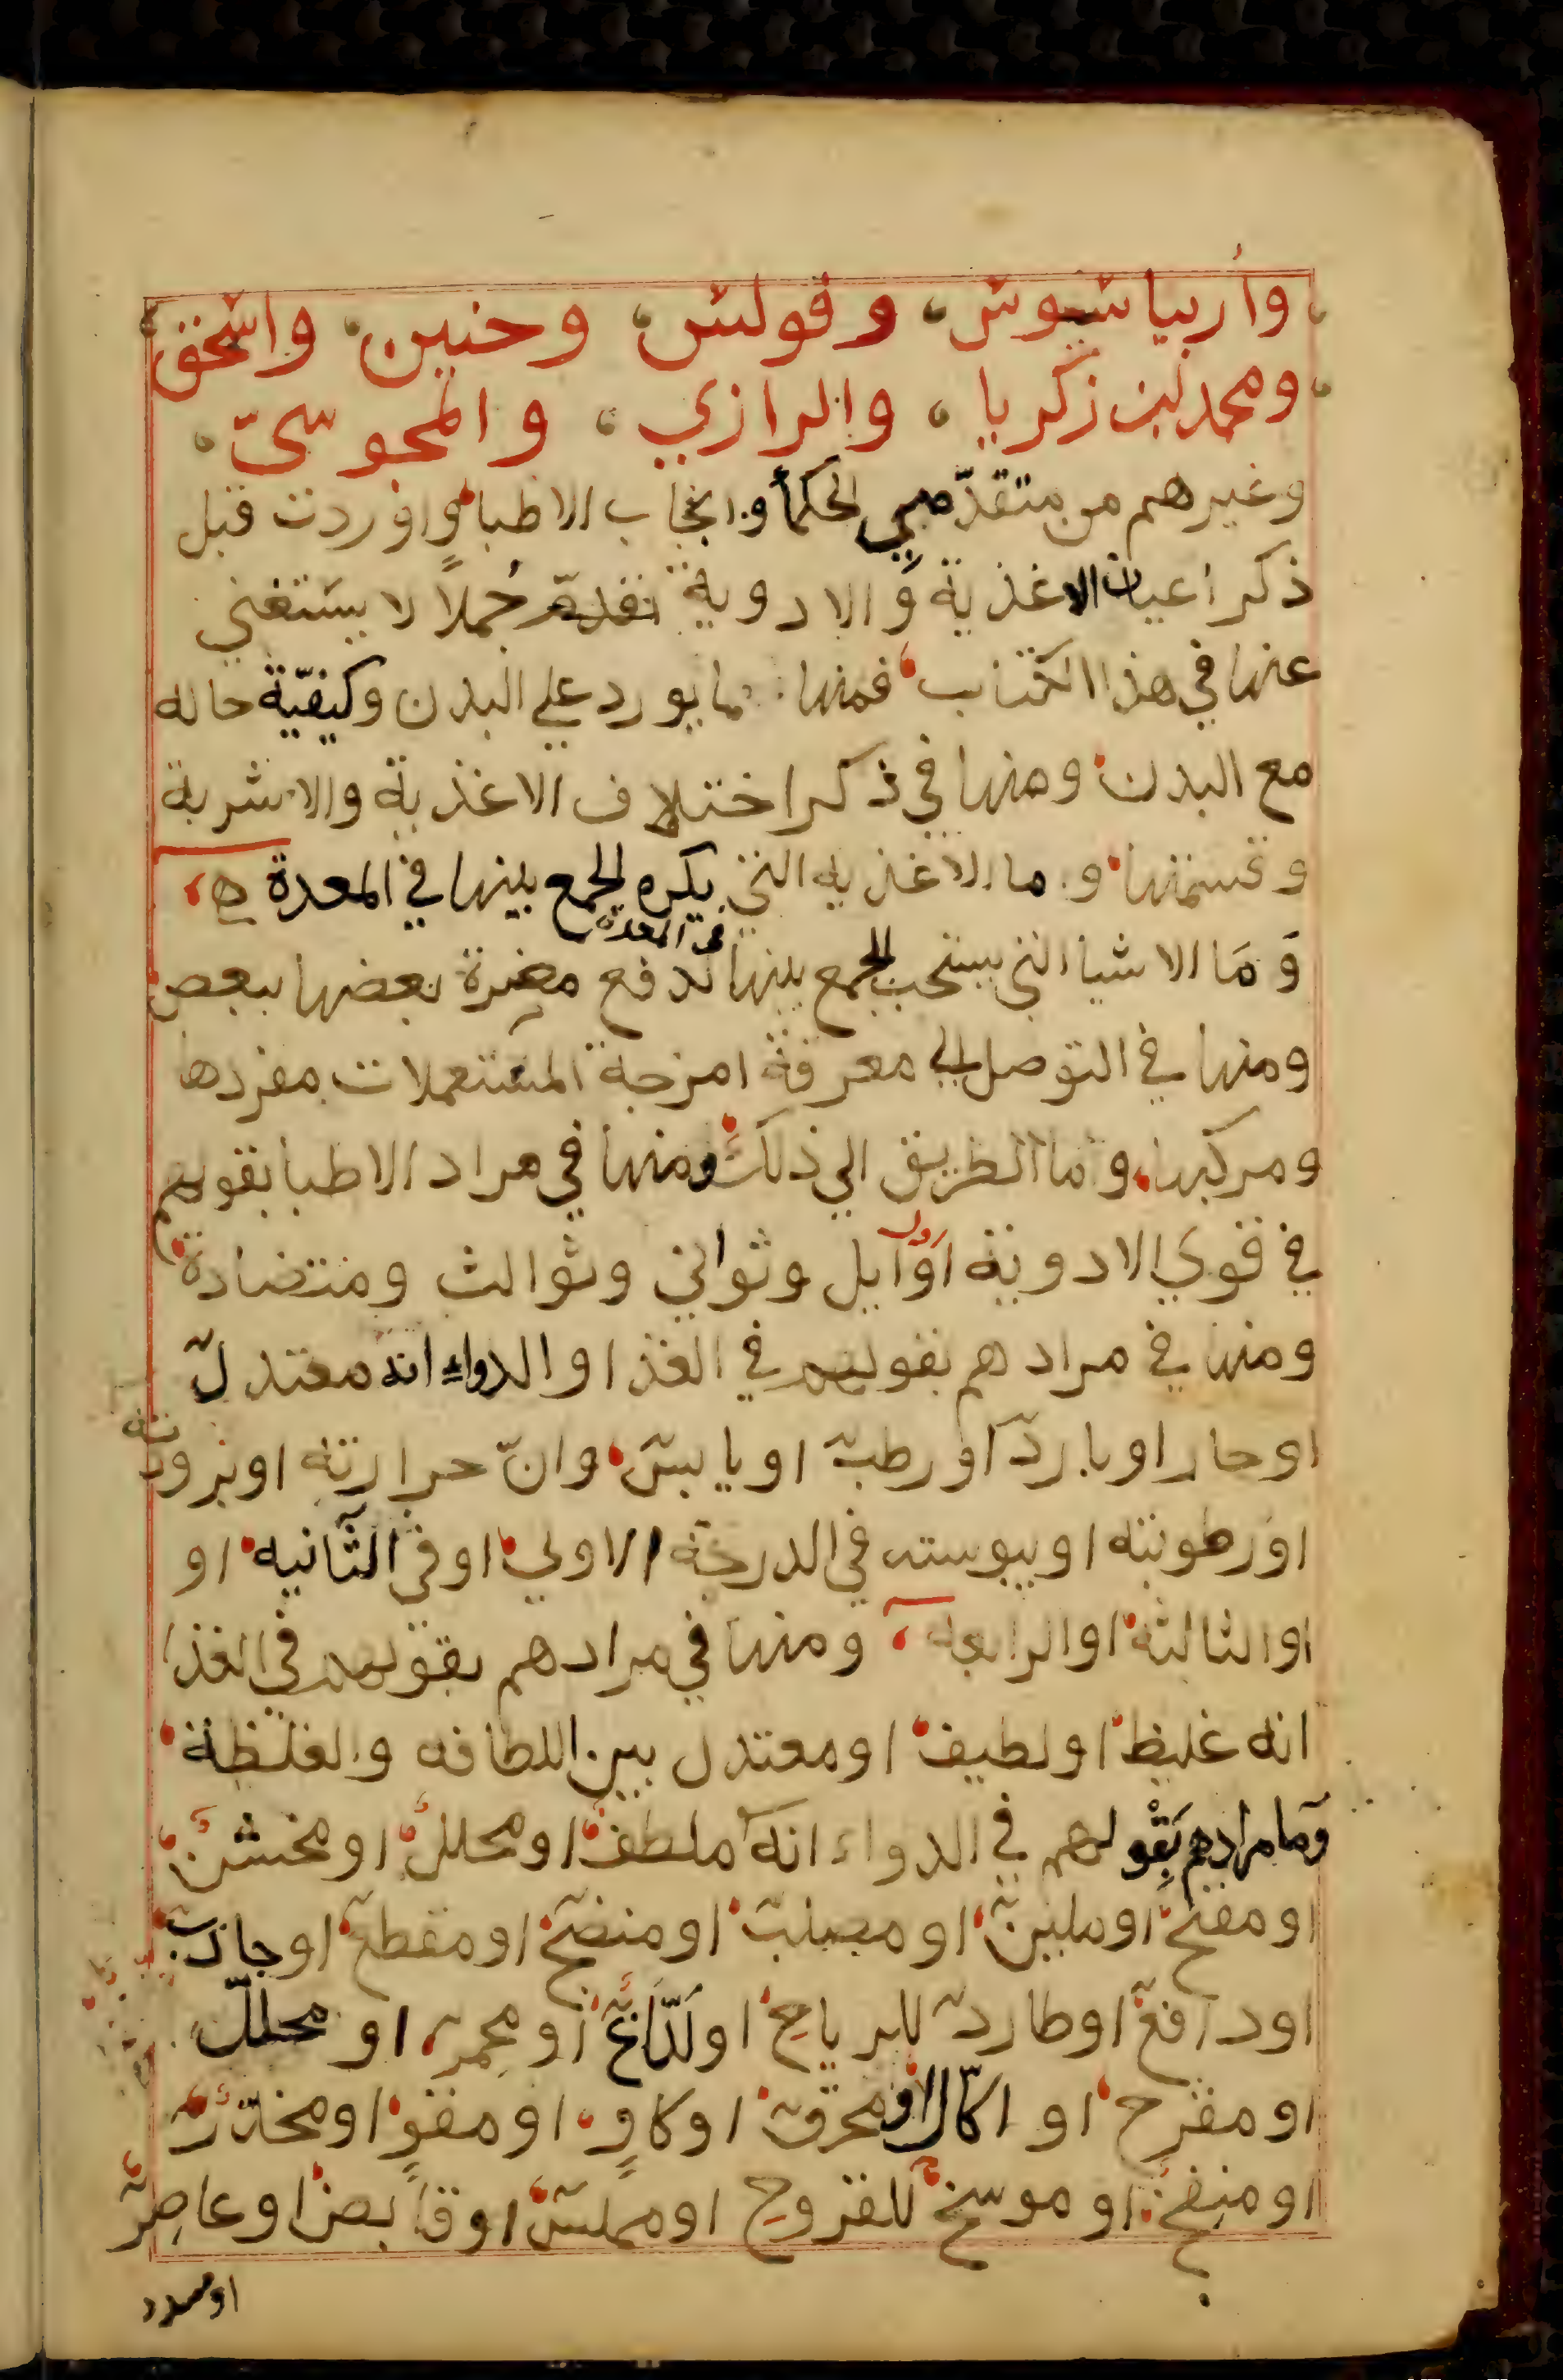 وأربياسيوس، وفولس، وحنين، واسحق
ومحمد بن زكريا، والرازي، والمجوسيّ،
وغيرهم من متقدّمي الحكمأ وانجاب الاطبا واوردت قبل
ذكر اعيان الاغذية والادوية تقدمة جُملاً لا يستغني
عنها في هذا الكتاب فمنها ما يورد علي البدن وكيفيّة حاله
مع البدن ومنها في ذكر اختلاف الاغذية والاشربة
وقسمتها وما الاغذيه التي يكره الجمع بينها في المعدة ه،
في المعدة
وَمَا الاشيا التي يستحب الجمع بينها لدفع مضرة بعضها ببعض
ومنها في التوصل الي معرفة امزجة المستعملات مفردها
ومركبها وما الطريق الي ذلك ومنها في مراد الاطبا بقولهم
في قوي الادوية اوايل وثواني وثوالث ومتضادة
ومنها في مرادهم بقولهم في الغذا والدواء انه معتدل
او حار او بارد او رطب او يابس وانّ حرارته او برودته
او رطوبته او يبوسته في الدرجة الاولي او في الثانيه او
او الثالثة او الرابعه، ومنها في مرادهم بقولهم في الغذا
انه غليظ او لطيف او معتدل بين اللطافه والغلظة
وما مرادهم بقولهم في الدواء انه ملطف او محلل او مخشن
او مفتح او ملين او مصلب او منضج او مقطع او جاذب
او دافع او طارد للرياح او لذّاع او محمر او محلل
او مقرح او اكّال او محرق او كاوٍ او مقوٍ او مخدر
او منفخ او موسخ للقروح او مملس او قابض او عاصر
او مسدد